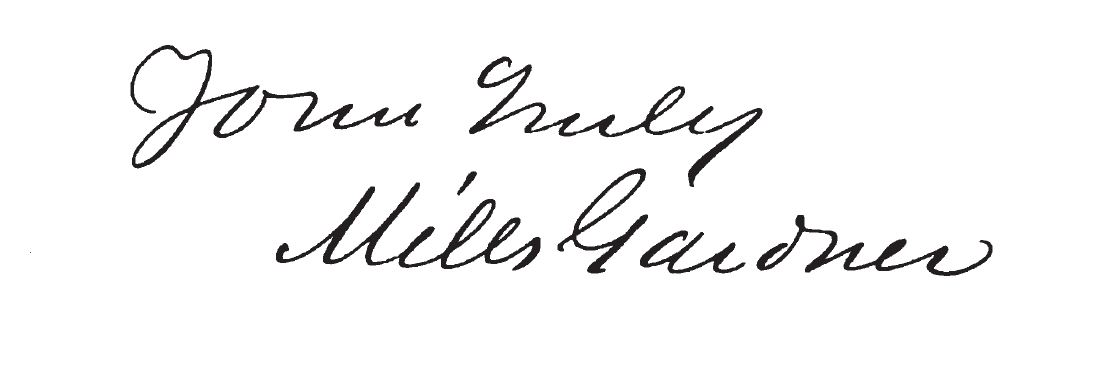 Yours Truly
Mills Gardner